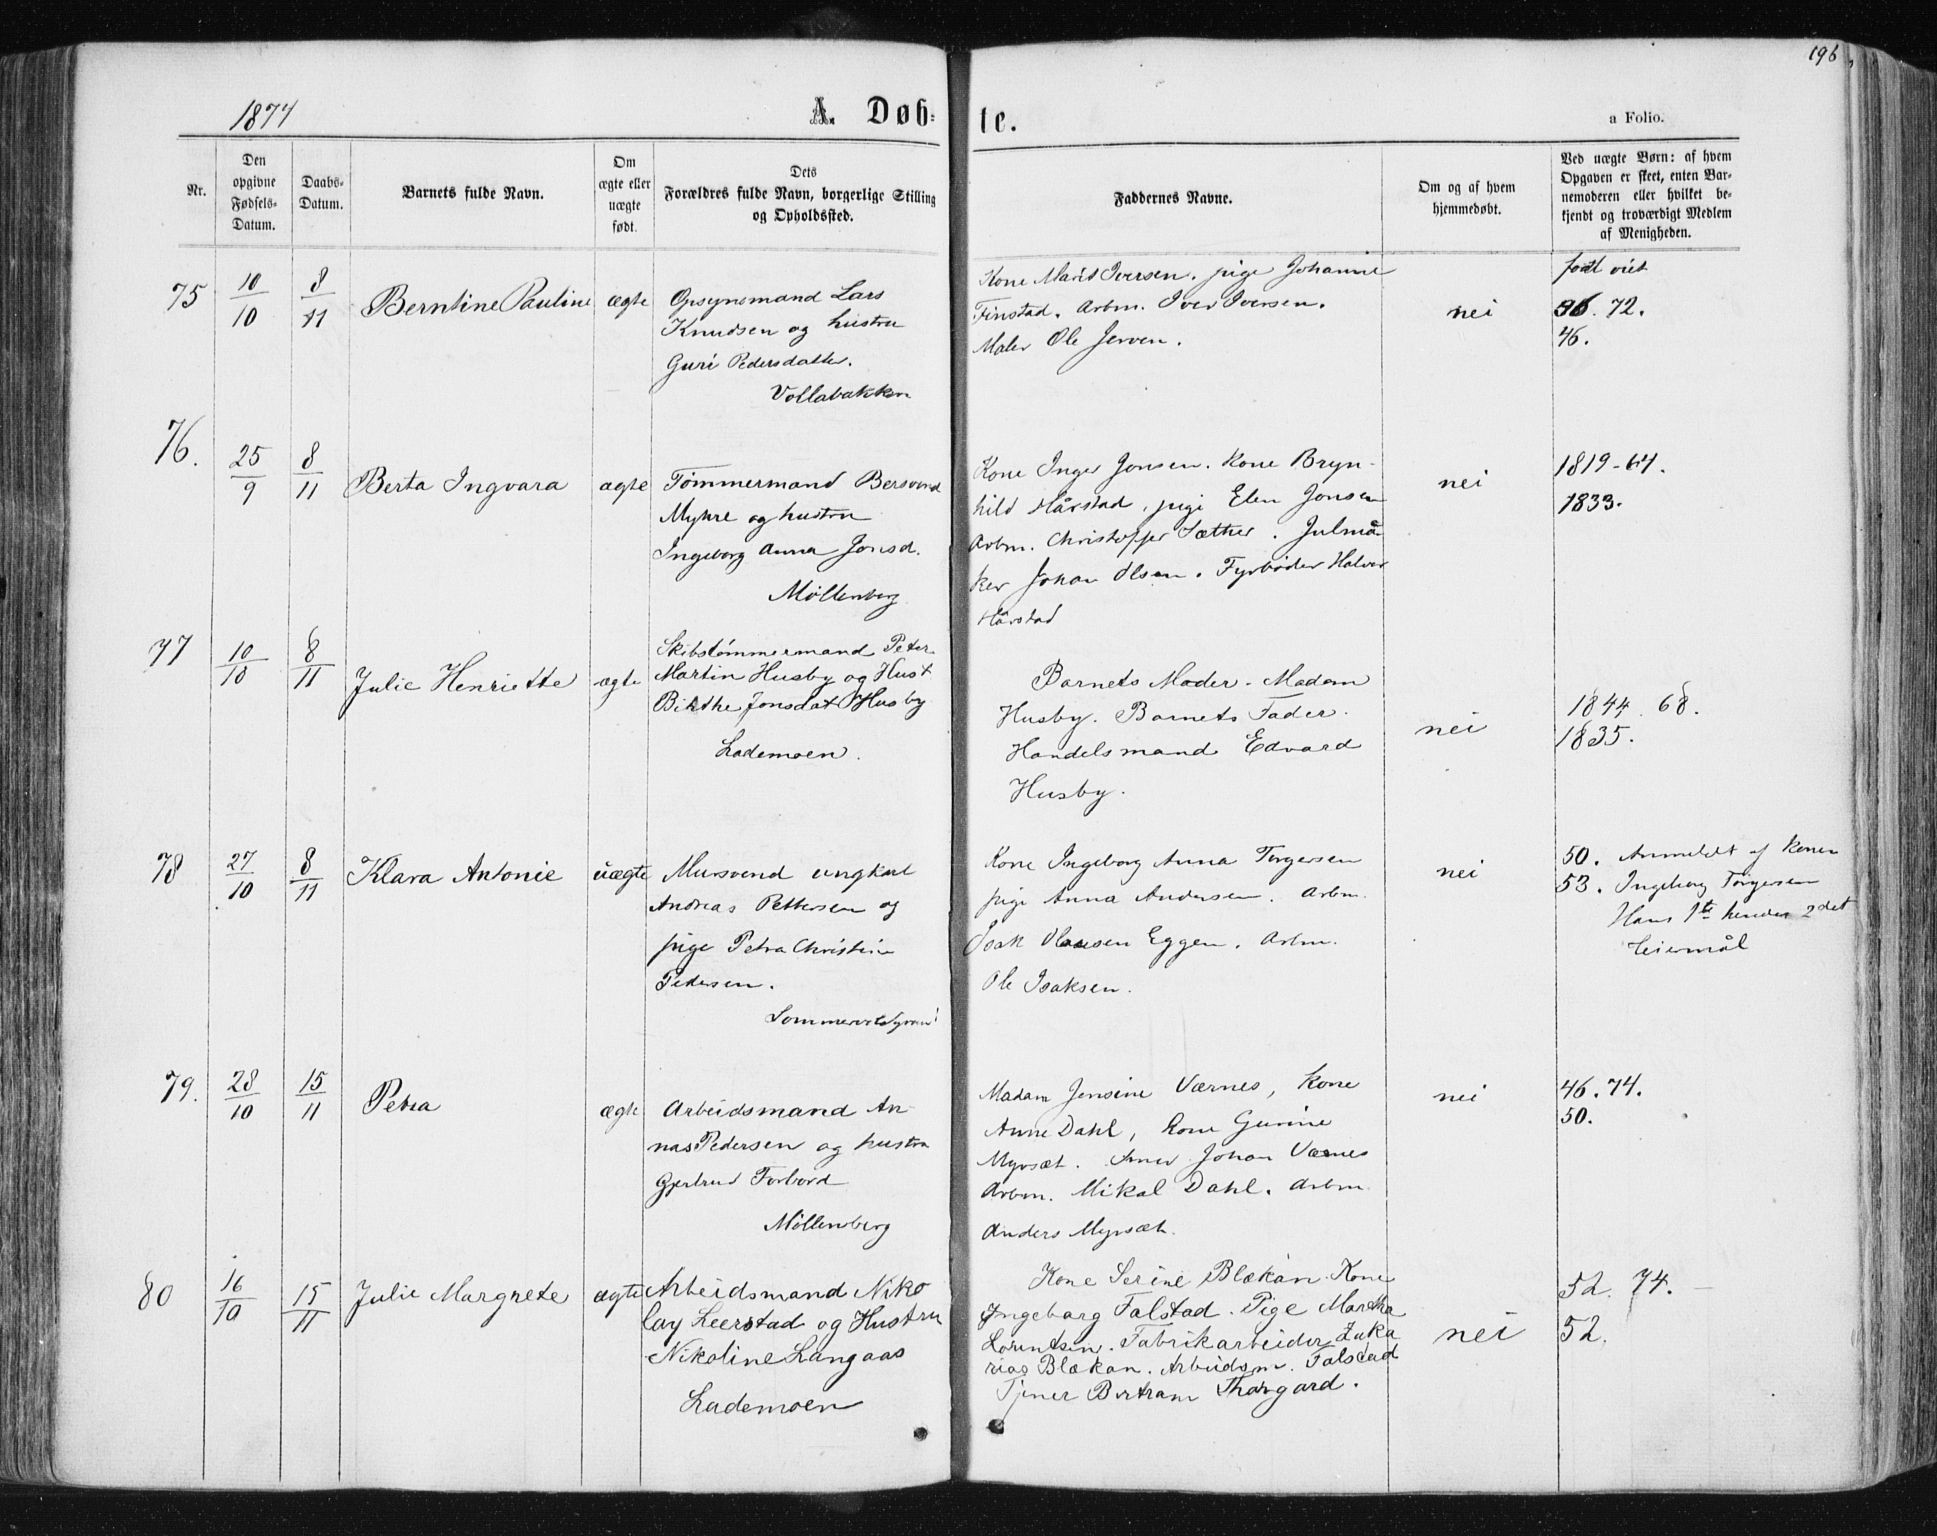 196
1874
A. Døb=
te.
a Folio.
Nr.
Den
opgivne
Fødsels-
Datum.
Daabs-
Datum.
Barnets fulde Navn.
Om
ægte eller
uægte
født.
Dets
Forældres fulde Navn, borgerlige Stilling
og Opholdssted.
Faddernes Navne.
Om og af hvem
hjemmedøbt.
Ved uægte Børn: af hvem
Opgaven er skeet, enten Bar-
nemoderen eller hvilket be-
kjendt og troværdigt Medlem
af Menigheden.
75
10
10
8
11
Berntine Pauline
ægte
Opsynsmand Lars
Knudsen og hustru
Guri Pedersdatter.
Vollabakken
Kone Marit Iversen. pige Johanne
Finstad. Arbm. Iver Iversen.
Maler Ole Jerven.
nei
født viet
36. 72.
46.
76.
25
9
8
11
Berta Ingvara
ægte
Tømmermand Bersvend
Myhre og hustru
Ingeborg Anna Jonsd.
Møllenberg
Kone Inger Jonsen. Kone Bryn-
hild Hårstad, pige Elen Jonsen
Arbm. Christoffer Sæther. Julmå-
ker Johan Olsen. Fyrbøder Halver
Hårstad
nei
1819-64.
1833.
77
10
10
8
11
Julie Henriette
ægte
Skibstømmermand Peter
Martin Husby og Hust
Birthe Jonsdat Husby
Lademoen.
Barnets Moder. Madam
Husby. Barnets Fader.
Handelsmand Edvard
Husby.
nei
1844. 68.
1835.
78
27
10
8
11
Klara Antonie
uægte
Mursvend ungkarl
Andreas Pettersen og
pige Petra Christine
Pedersen.
Kone Ingeborg Anna Torgersen
pige Anna Andersen. Arbm.
Isak Olausen Eggen. Arbm.
Ole Isaksen.
nei
50. Anmeldt af konen
53. Ingeborg Torgersen
Hans 1te hendes 2det
leiermål
79.
28
10
15
11
Petra
ægte
Arbeidsmand An-
nas Pedersen og hustru
Gjertrud Forbord
Møllenberg
Madam Jensine Værnes, Kone
Anne Dahl, Kone Gurine
Myrsæt. Johan Værnes
Arbm. Mikal Dahl. Arbm
Anders Myrsæt.
nei
46. 74.
50.
80
16
10
15
11
Julie Margrete
ægte
Arbeidsmand Niko
lay Leerstad og Hustru
Nikoline Langaas
Lademoen
Kone Serine Blekan. Kone
Ingeborg Falstad. Pige Martha
Lorntsen. Fabrikarbeider Zaka
rias Blekan. Arbeidsm. Falstad
Tjener Bertram Thorgard.
nei
52. 74.
52.